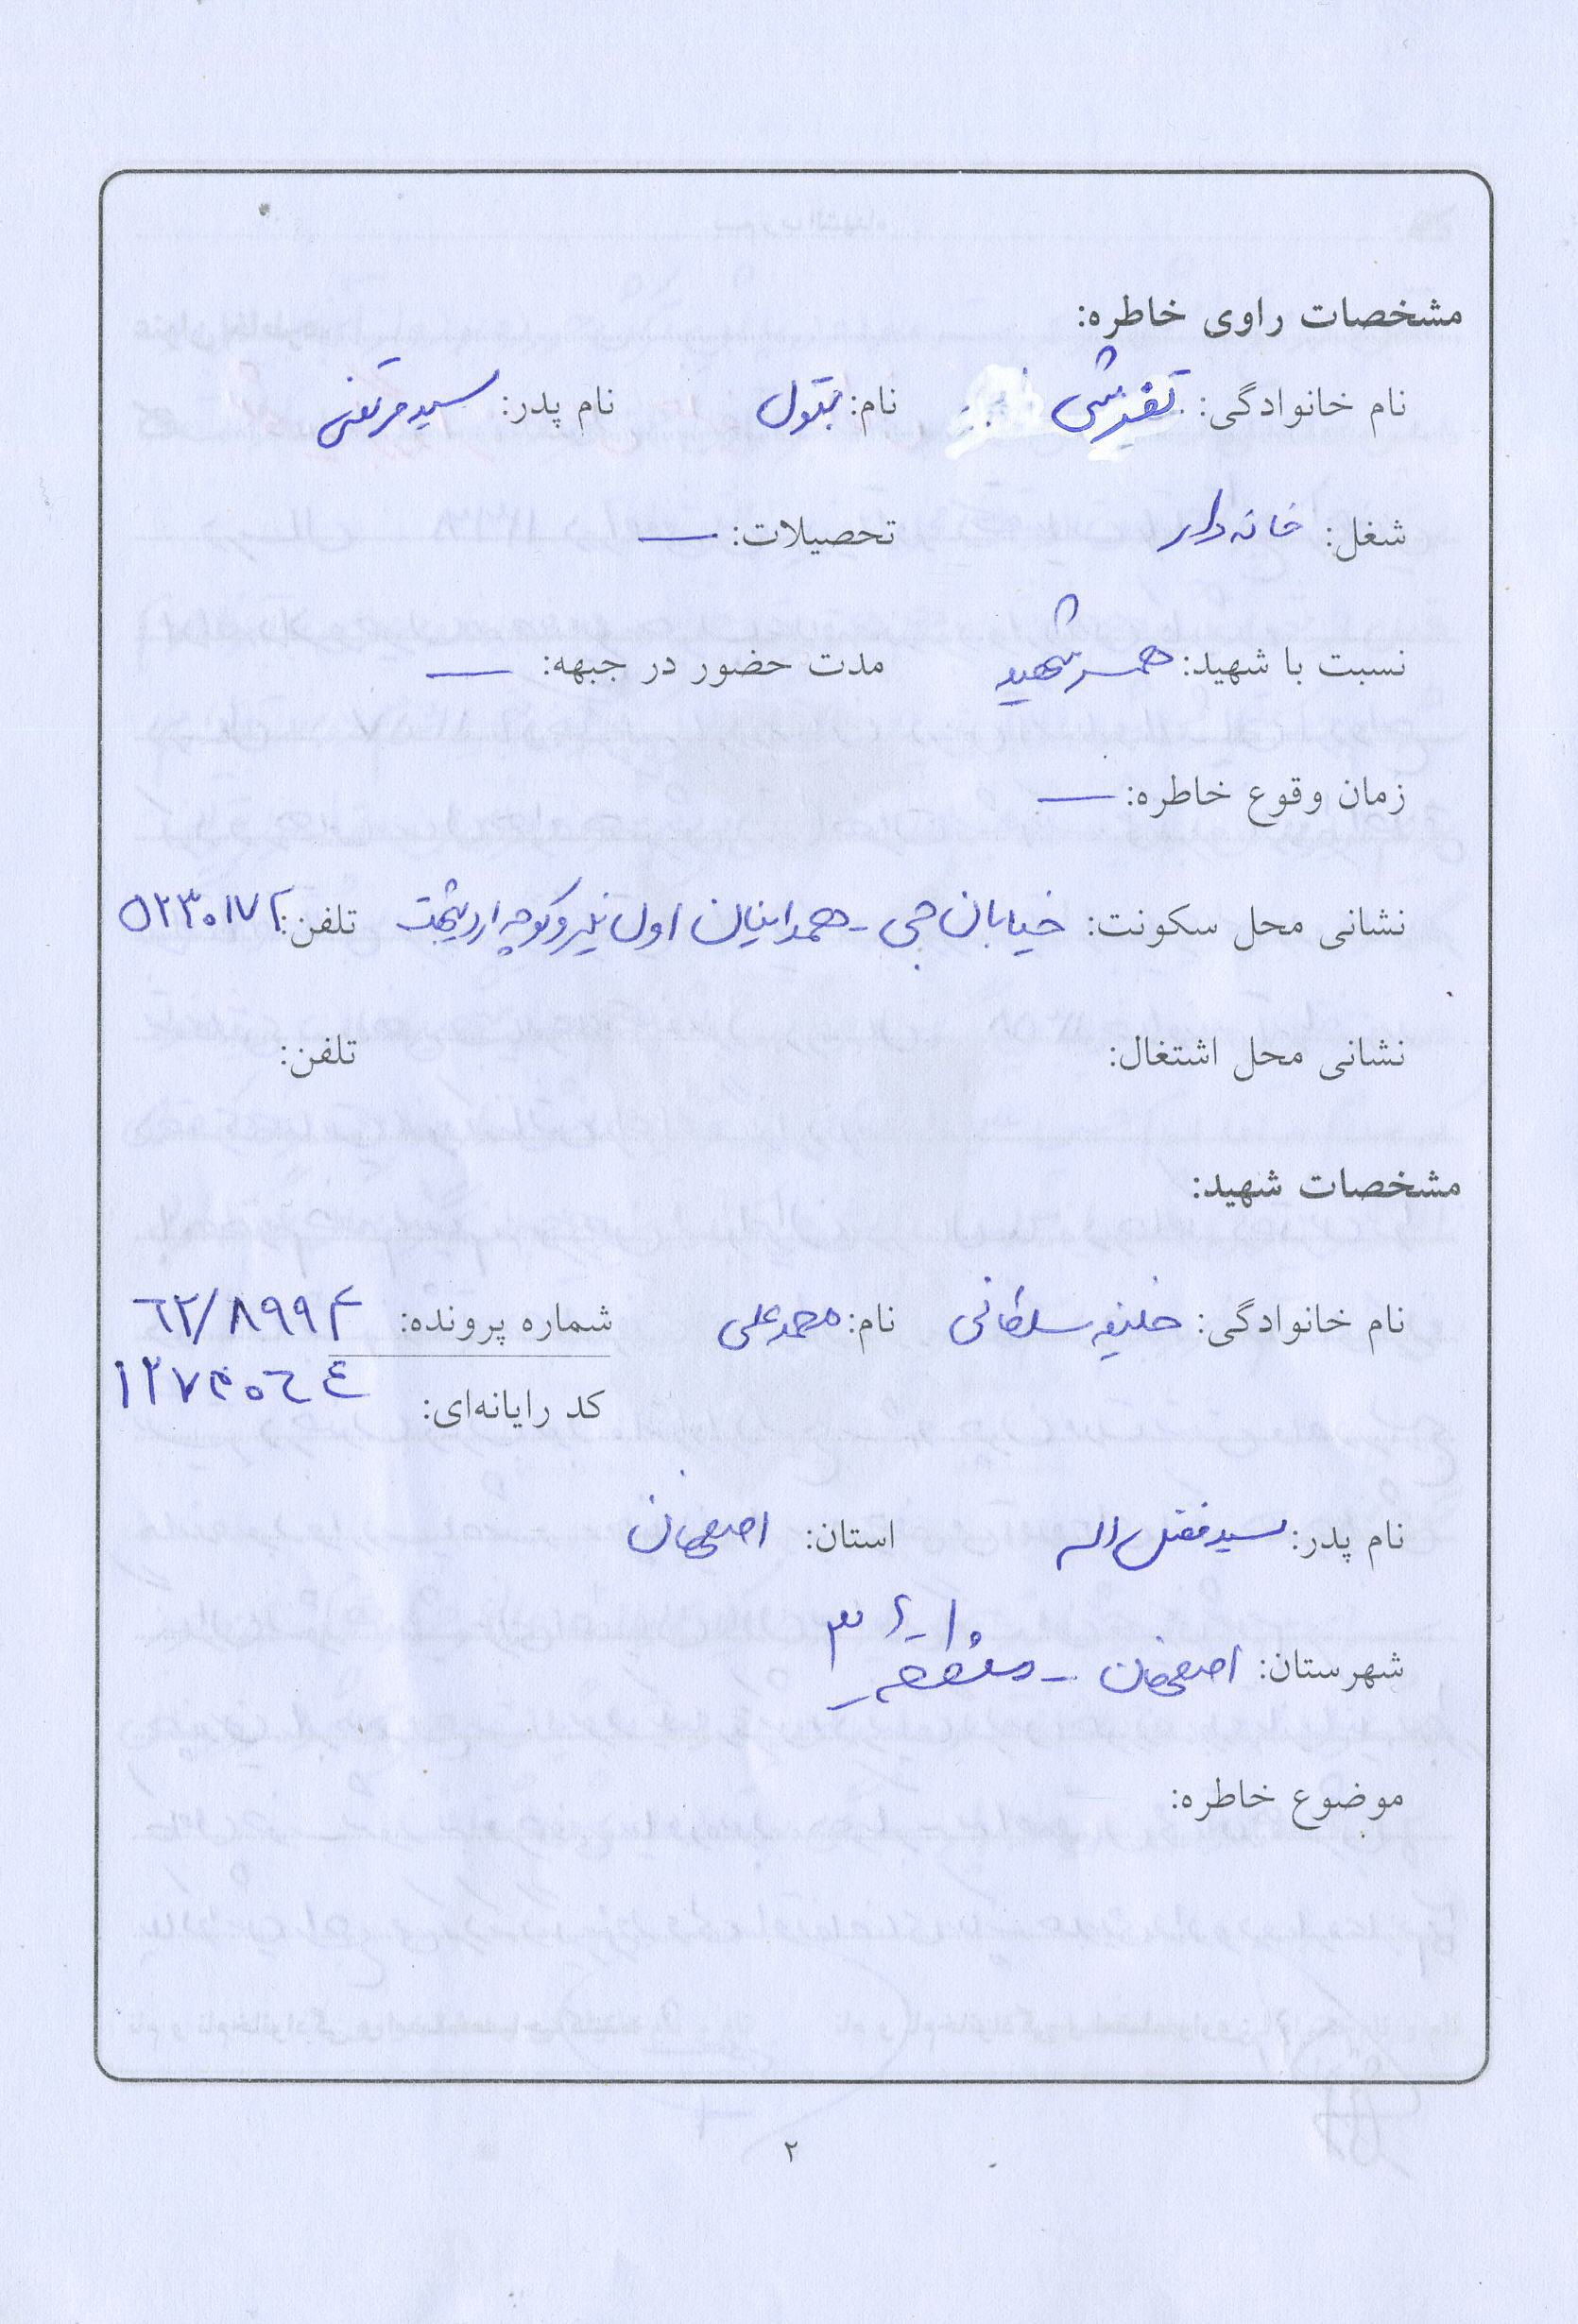 مشخصات راوی خاطره:
نام خانوادگی: تفرشی نام: بتول نام پدر: سید مرتضی
شغل: خانه دار تحصیلات: —
نسبت با شهید: همسر شهید مدت حضور در جبهه: —
زمان وقوع خاطره: —
نشانی محل سکونت: خیابان جی - همدانیان اول نیرو کوچه اردیبهشت تلفن: ۵۲۳۰۱۷۲
نشانی محل اشتغال: تلفن:
مشخصات شهید:
نام خانوادگی: خلیفه سلطانی نام: محمد علی شماره پرونده: ۶۲/۸۹۹۴
کد رایانه‌ای: ۱۲۷۳۰۶۴
نام پدر: سید فضل اله استان: اصفهان
شهرستان: اصفهان - منطقه ۳
موضوع خاطره:
۲